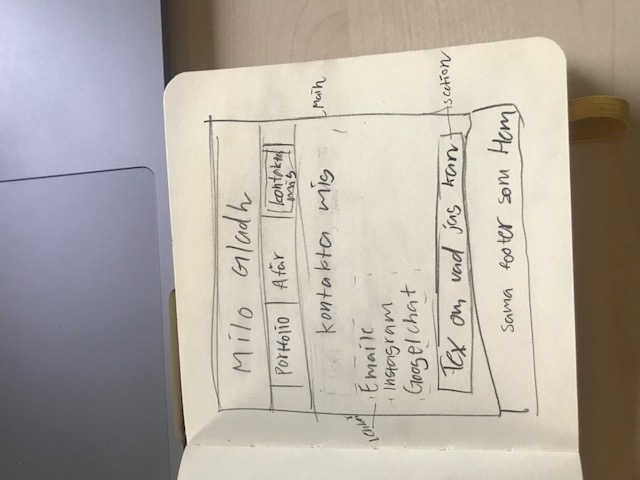 Milo Gladh
Portfolio
Afär
kontakta
mig
kontakta mig
main
Emaile
Instagram
Googelchat
Tex om vad jag kan
section
sama footer som Hem